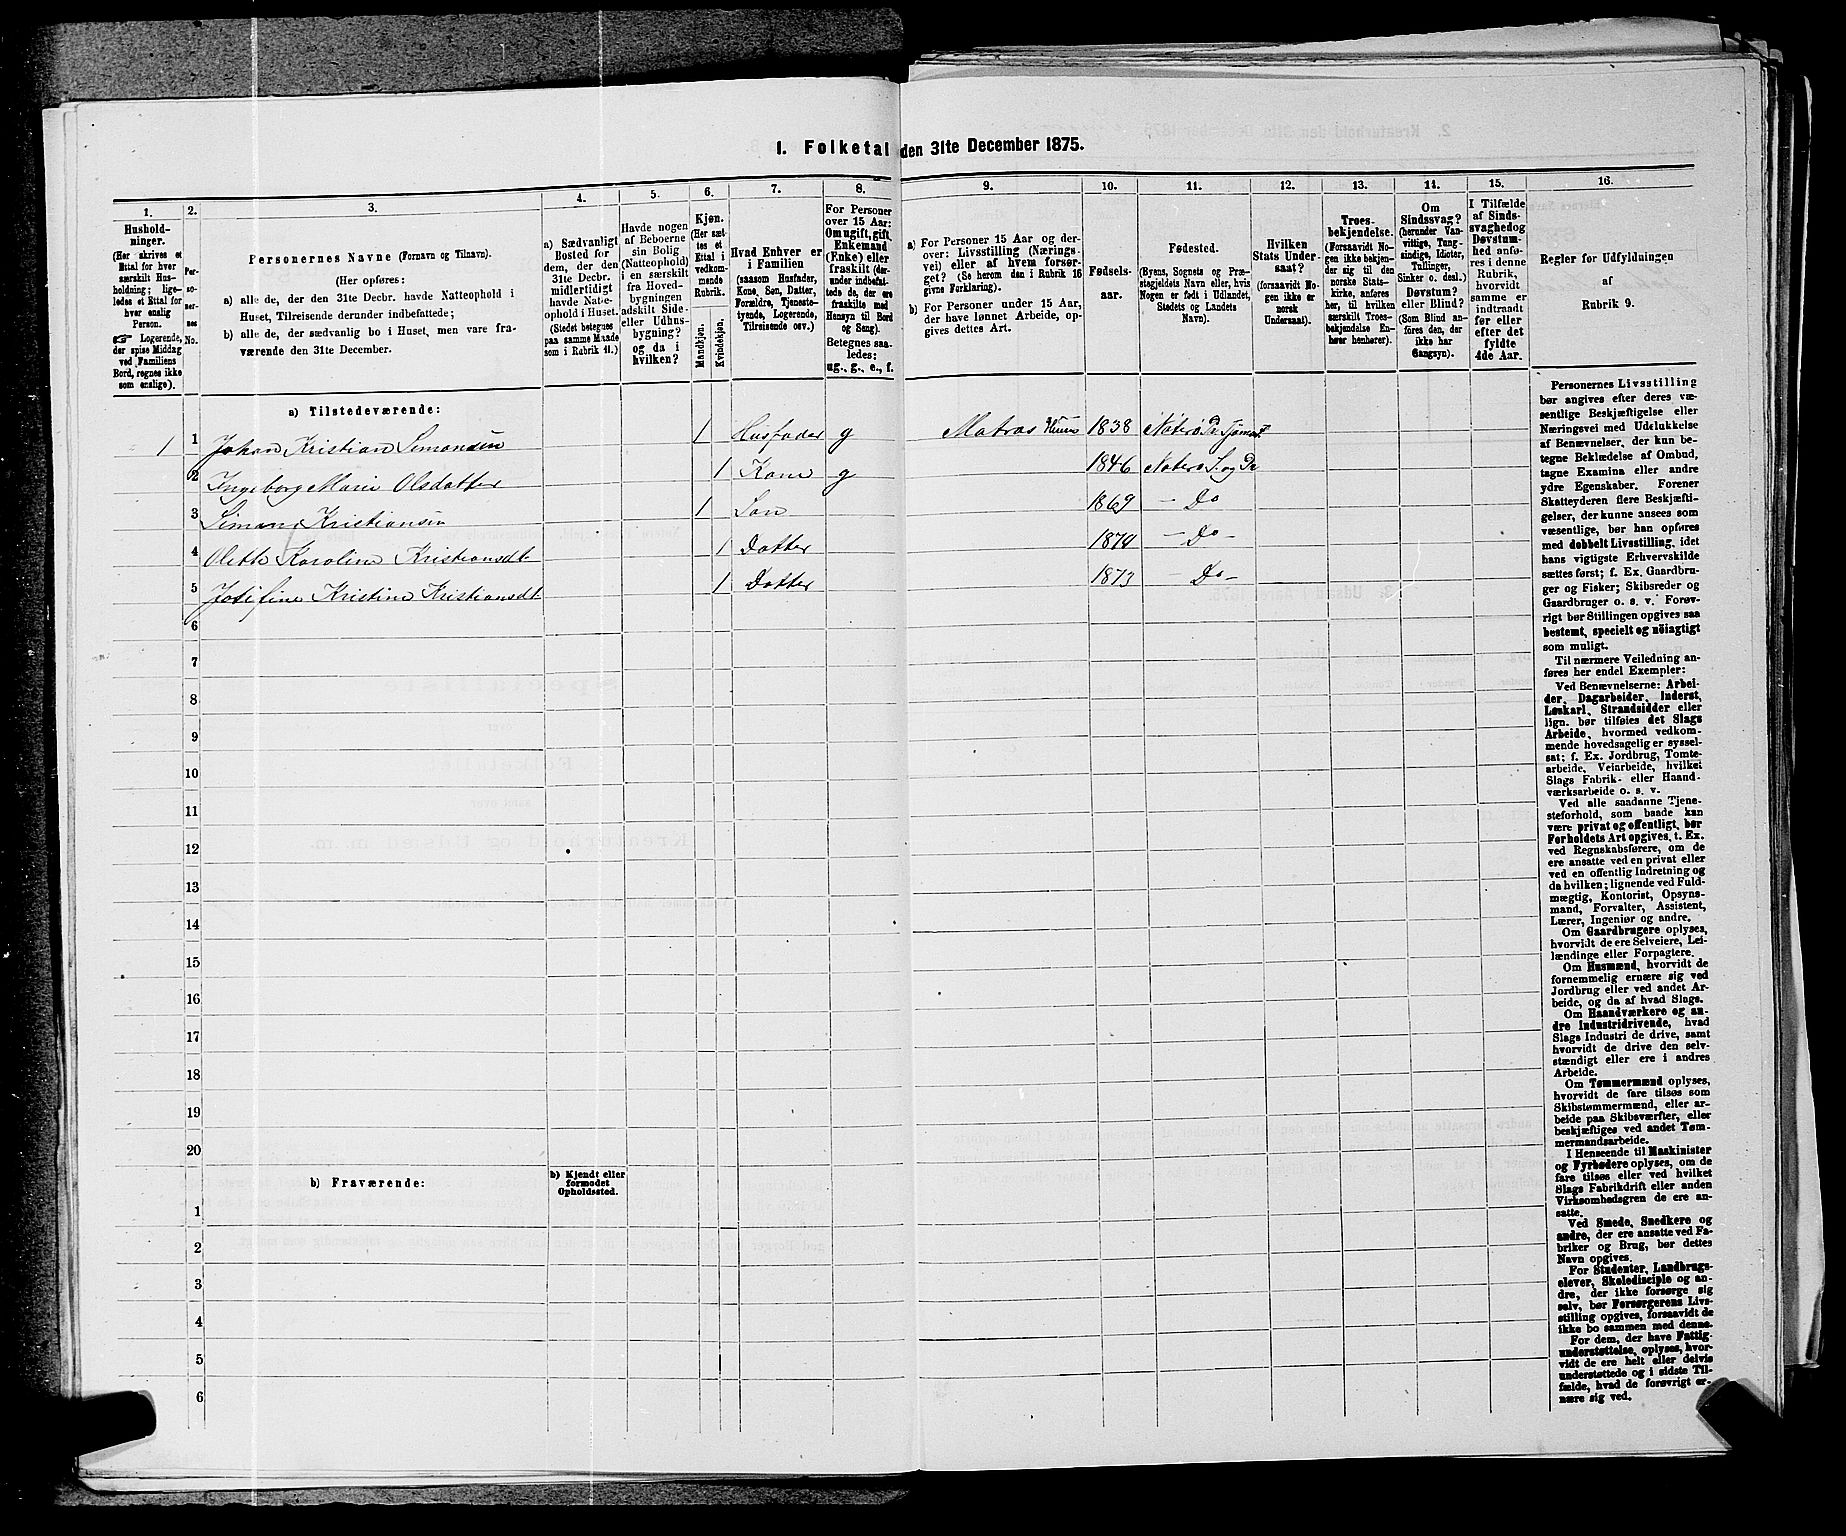 1. Folketal den 31te December 1875.
1.
Hushold-
ninger.
(Her skrives et
Ettal for hver
særskilt Hus-
holdning; lige-
ledes et Ettal for
hver enslig
Person.
☞ Logerende,
der spise Middag
ved Familiens
Bord, regnes ikke
som enslige).
2.
Per-
so-
ner-
nes
No.
3.
Personernes Navne (Fornavn og Tilnavn).
(Her opføres:
a) alle de, der den 31te Decbr. havde Natteophold i
Huset, Tilreisende derunder indbefattede;
b) alle de, der sædvanlig bo i Huset, men vare fra-
værende den 31te December.
4.
a) Sædvanligt
Bosted for
dem, der den
31te Decbr.
midlertidigt
havde Natte-
ophold i Huset.
(Stedet betegnes
paa samme Maade
som i Rubrik 11.)
5.
Havde nogen
af Beboerne
sin Bolig
(Natteophold)
i en særskilt
fra Hoved-
bygningen
adskilt Side-
eller Udhus-
bygning?
og da i
hvilken?
6.
Kjøn.
(Her sæt-
tes et
Ettal i
vedkom-
mende
Rubrik.
Mandkjøn.
Kvindekjøn.
7.
Hvad Enhver er
i Familien
(saasom Husfader,
Kone, Søn, Datter,
Forældre, Tjeneste-
tyende, Logerende,
Tilreisende osv.)
8.
For Personer
over 15 Aar:
Om ugift, gift,
Enkemand
(Enke) eller
fraskilt (der-
under indbefat-
tede de, der ere
fraskilte med
Hensyn til Bord
og Seng).
Betegnes saa-
ledes:
ug., g., e., f.
9.
a) For Personer 15 Aar og der-
over: Livsstilling (Nærings-
vei) eller af hvem forsør-
get? (Se herom den i Rubrik 16
givne Forklaring).
b) For Personer under 15 Aar,
der have lønnet Arbeide, op-
gives dettes Art.
10.
Fødsels-
aar.
11.
Fødested.
(Byens, Sognets og Præ-
stegjeldets Navn eller, hvis
Nogen er født i Udlandet,
Stedets og Landets
Navn).
12.
Hvilken
Stats Under-
saat?
(forsaavidt No-
gen ikke er
norsk
Undersaat).
13.
Troes-
bekjendelse.
(Forsaavidt No-
gen ikke bekjen-
der sig til den
norske Stats-
kirke, anføres
her, til hvilken
særskilt Troes-
bekjendelse En-
hver henhører).
14.
Om
Sindssvag?
(herunder Van-
vittige, Tung-
sindige, Idioter,
Tullinger,
Sinker o. desl.)
Døvstum?
eller Blind?
(Som Blind an-
føres den, der
ikke har
Gangsyn).
15.
I Tilfælde
af Sinds-
svaghed og
Døvstum-
hed anfø-
res i denne
Rubrik,
hvorvidt
samme er
indtraadt
før eller
efter det
fyldte
4de Aar.
16.
Regler for Udfyldningen
af
Rubrik 9.
a) Tilstedeværende:
1 1 Johan Kristian Simonsen 1 Husfader g Matros 1838 Nøterø
2 Ingeborg Marie Olsdatter 1 Kone g 1846 Nøterø S. og Pr
3 Simon Kristiansen 1 Søn 1869 – Do
4 Olette Karoline Kristiansdt 1 Datter – Do –
5 Josefine Kristine Kristiansdt 1 Datter 1873 – Do –
6
7
8
9
10
11
12
13
14
15
16
17
18
19
20
b) Fraværende:
b) Kjendt eller
formodet
Opholdssted.
1
2
3
4
5
6
Personernes Livsstilling
bør angives efter deres væ-
sentlige Beskjæftigelse eller
Næringsvei med Udelukkelse
af Benævnelser, der kun be-
tegne Beklædelse af Ombud,
tagne Examina eller andre
ydre Egenskaber. Forener
Skatteyderen flere Beskjæfti-
gelser, der kunne ansees som
væsentlige, bør han opføres
med dobbelt Livsstilling, idet
hans vigtigste Erhvervskilde
sættes først; f. Ex. Gaardbru-
ger og Fisker; Skibsreder og
Gaardbruger o. s. v. Forøv-
rigt bør Stillingen opgives saa
bestemt, specielt og nöiagtigt
som muligt.
Til nærmere Veiledning an-
føres her endel Exempler:
Ved Benævnelserne: Arbei-
der, Dagarbeider, Inderst,
Løskarl, Strandsidder eller
lign. bør tilføies det Slags
Arbeide, hvormed vedkom-
mende hovedsagelig er syssel-
sat; f. Ex. Jordbrug, Tomte-
arbeide, Veiarbeide, hvilket
Slags Fabrik- eller Haand-
værksarbeide o. s. v.
Ved alle saadanne Tjene-
steforhold, som baade kan
være privat og offentligt, bør
Forholdets Art opgives, t. Ex.
ved Regnskabsførere, om de
ere ansatte ved en privat eller
ved en offentlig Indretning og
da hvilken; lignende ved Fuld-
mægtig, Kontorist, Opsyns-
mand, Forvalter, Assistent,
Lærer, Ingeniør og andre.
Om Gaardbrugere oplyses,
hvorvidt de ere Selveiere, Lei-
lændinge eller Forpagtere.
Om Husmænd, hvorvidt de
fornemmelig ernære sig ved
Jordbrug eller ved andet Ar-
beide, og da af hvad Slags.
Om Haandværkere og an-
dre Industridrivende, hvad
Slags Industri de drive, samt
hvorvidt de drive den selv-
stændigt eller ere i andres
Arbeide.
Om Tømmermænd oplyses,
hvorvidt de fare tilsøs som
Skibstømmermænd, eller ar-
beide paa Skibsværfter, eller
beskjæftiges ved andet Tøm-
mermandsarbeide.
I Henseende til Maskinister
og Fyrbødere oplyses, om de
fare tilsøs eller ved hvilket
Slags Fabrikdrift eller anden
Virksomhedsgren de ere an-
satte.
Ved Smede, Snedkere og
andre, der ere ansatte ved Fa-
briker og Brug, bør dettes
Navn opgives.
For Studenter, Landbrugs-
elever, Skoledisciple og an-
dre, der ikke forsørge sig
selv, bør Forsørgerens Livs-
stilling opgives, forsaavidt de
ikke bo sammen med denne.
For dem, der have Fattig-
understøttelse, oplyses, hvor-
vidt de ere helt eller delvis
understøttede og i sidste Til-
fælde, hvad de forøvrigt er-
nære sig ved.